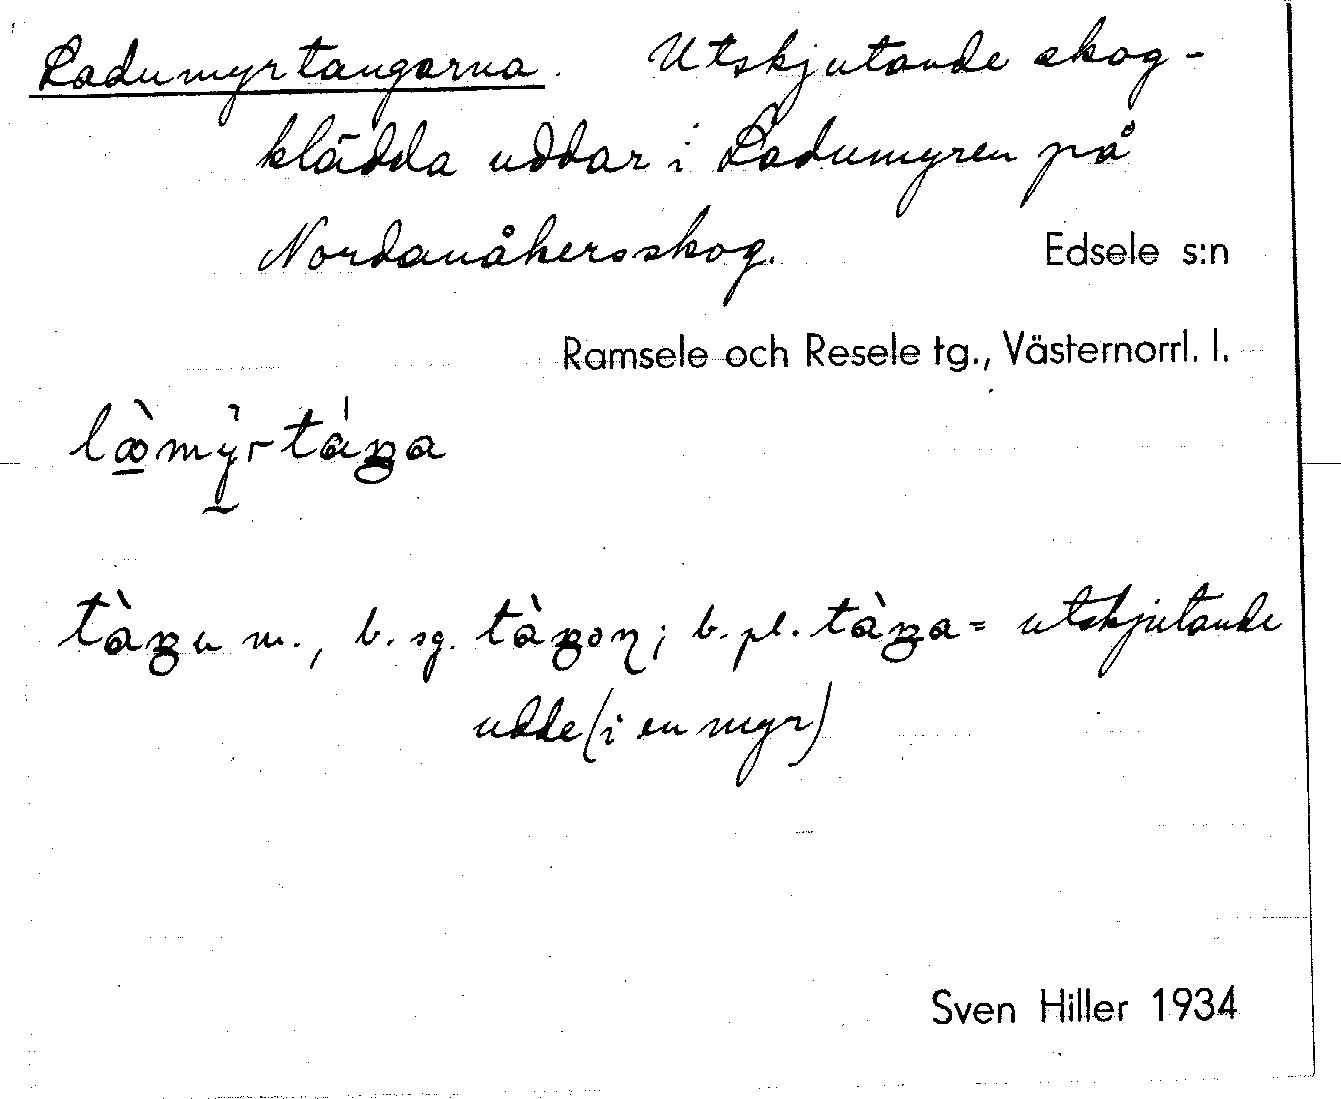 Ladumyrtangarna. Utskjutande skog-
klädda uddar i Ladumyren på
Nordanåkersskog. Edsele s:n
Ramsele och Resele tg., Västernorrl. l.
utskjutande
m., b. sg. ; b. pl. =
udde (i en myr)
Sven Hiller 1934